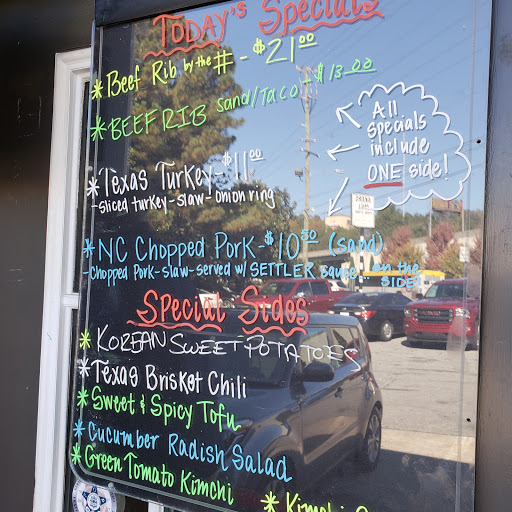 TODAY'S Specials
* Beef Rib by the # - $21.00
* BEEF RIB Sand/Taco - $13.00
All
specials
include
ONE side!
* Texas Turkey - $11.00
- sliced turkey - slaw - onion ring
* NC Chopped Pork - $10.50 (sand)
- Chopped Pork - slaw - served w/ SETTLER sauce on the
SIDE
Special Sides
* KOREAN SWEET POTATOES
* Texas Brisket Chili
* Sweet & Spicy Tofu
* Cucumber Radish Salad
* Green Tomato Kimchi
* Kimchi